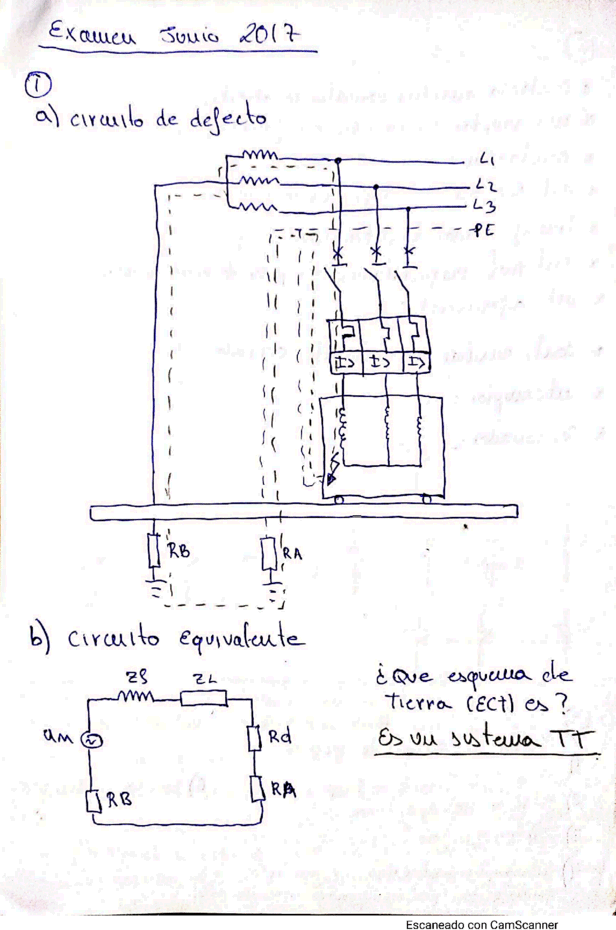 Examen Junio 2017
①
a) circuito de defecto
L1
L2
L3
PE
I> I> I>
RB
RA
b) circuito equivalente
Zs
ZL
Un
Rd
RB
RA
¿Que esquema de
tierra (ECT) es?
Es un sistema TT
Escaneado con CamScanner